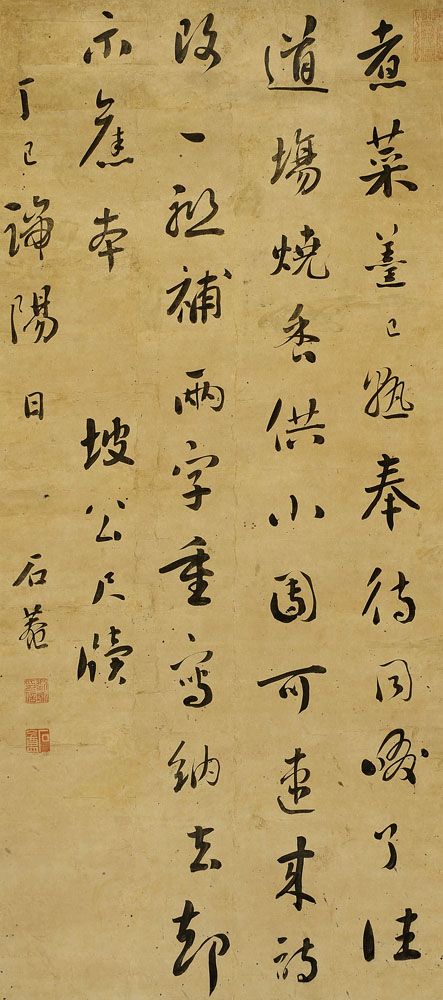 煮菜羹已熟奉待同啜了往
道場燒香供小團可速来詩
改一聯補兩字重寫納去却
示舊本 坡公尺牘
丁巳端陽日 石菴